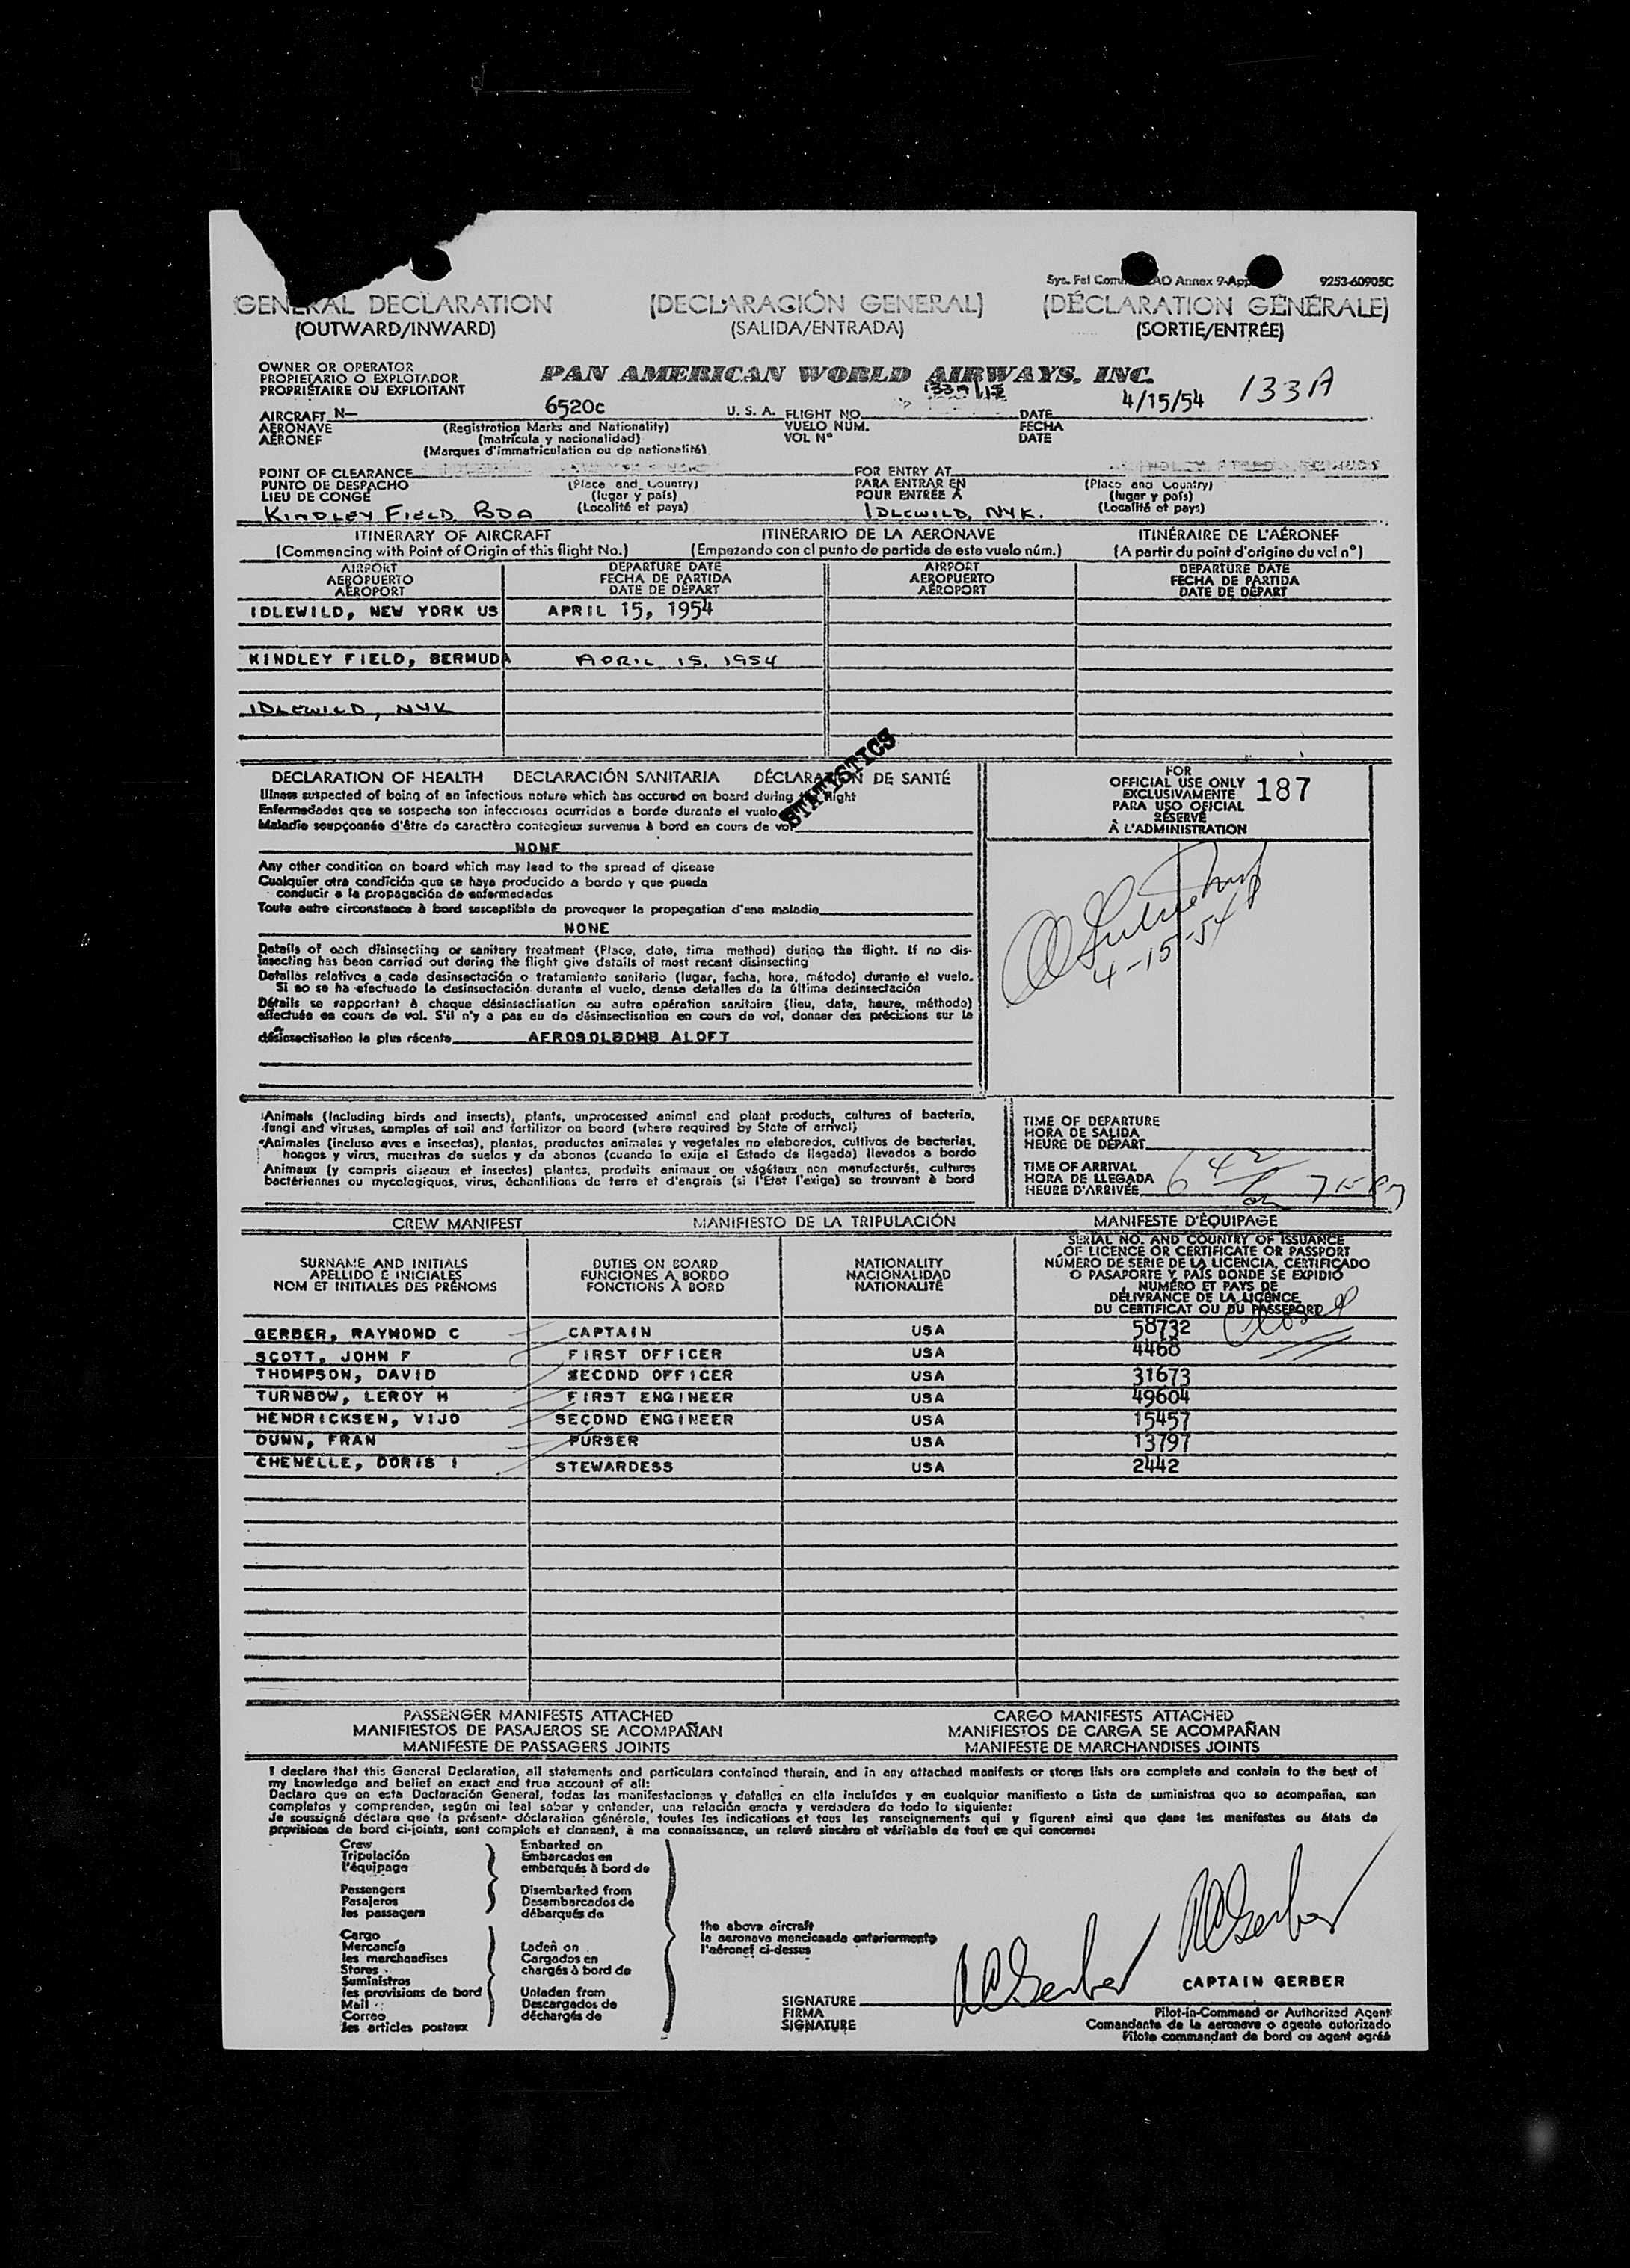 9253-60905C
GENERAL DECLARATION (DECLARACIÓN GENERAL) (DÉCLARATION GÉNÉRALE)
(OUTWARD/INWARD) (SALIDA/ENTRADA) (SORTIE/ENTRÉE)
OWNER OR OPERATOR
PROPIETARIO O EXPLOTADOR
PROPRIÉTAIRE OU EXPLOITANT
PAN AMERICAN WORLD AIRWAYS, INC.
133A
AIRCRAFT N— 6520c U. S. A. FLIGHT NO. DATE 4/15/54
AERONAVE (Registration Marks and Nationality) VUELO NÚM. FECHA
AÉRONEF (matrícula y nacionalidad) VOL N° DATE
(Marques d'immatriculation ou de nationalité)
POINT OF CLEARANCE FOR ENTRY AT
PUNTO DE DESPACHO (Place and Country) PARA ENTRAR EN (Place and Country)
LIEU DE CONGÉ (lugar y país) POUR ENTRÉE A (lugar y país)
(Localité et pays) (Localité et pays)
KINDLEY FIELD, BDA IDLEWILD, NYK.
ITINERARY OF AIRCRAFT ITINERARIO DE LA AERONAVE ITINÉRAIRE DE L'AÉRONEF
(Commencing with Point of Origin of this flight No.) (Empezando con el punto de partida de este vuelo núm.) (A partir du point d'origine du vol n°)
AIRPORT DEPARTURE DATE AIRPORT DEPARTURE DATE
AEROPUERTO FECHA DE PARTIDA AEROPUERTO FECHA DE PARTIDA
AÉROPORT DATE DE DÉPART AÉROPORT DATE DE DÉPART
IDLEWILD, NEW YORK US APRIL 15, 1954
KINDLEY FIELD, BERMUDA APRIL 15, 1954
IDLEWILD, NYK
STATISTICS
DECLARATION OF HEALTH DECLARACIÓN SANITARIA DÉCLARATION DE SANTÉ
Illness suspected of being of an infectious nature which has occured on board during flight
Enfermedades que se sospecha son infecciosas ocurridas a bordo durante el vuelo
Maladie soupçonnée d'être de caractère contagieux survenue à bord en cours de vol
NONE
Any other condition on board which may lead to the spread of disease
Cualquier otra condición que se haya producido a bordo y que pueda
conducir a la propagación de enfermedades
Toute autre circonstance à bord susceptible de provoquer la propagation d'une maladie
NONE
Details of each disinsecting or sanitary treatment (Place, date, time method) during the flight. If no dis-
insecting has been carried out during the flight give details of most recent disinsecting
Detalles relativos a cada desinsectación o tratamiento sanitario (lugar, fecha, hora, método) durante el vuelo.
Si no se ha efectuado la desinsectación durante el vuelo, dense detalles de la última desinsectación
Détails se rapportant à chaque désinsectisation ou autre opération sanitaire (lieu, date, heure, méthode)
effectuée en cours de vol. S'il n'y a pas eu de désinsectisation en cours de vol, donner des précisions sur la
désinsectisation la plus récente AEROSOLBOMB ALOFT
FOR
OFFICIAL USE ONLY 187
EXCLUSIVAMENTE
PARA USO OFICIAL
RÉSERVÉ
À L'ADMINISTRATION
4-15-54
Animals (Including birds and insects), plants, unprocessed animal and plant products, cultures of bacteria,
fungi and viruses, samples of soil and fertilizer on board (where required by State of arrival)
Animales (incluso aves e insectos), plantas, productos animales y vegetales no elaborados, cultivos de bacterias,
hongos y virus, muestras de suelos y de abonos (cuando lo exija el Estado de llegada) llevados a bordo
Animaux (y compris oiseaux et insectes) plantes, produits animaux ou végétaux non manufacturés, cultures
bactériennes ou mycologiques, virus, échantillons de terre et d'engrais (si l'Etat l'exige) se trouvant à bord
TIME OF DEPARTURE
HORA DE SALIDA
HEURE DE DÉPART
TIME OF ARRIVAL
HORA DE LLEGADA
HEURE D'ARRIVÉE
CREW MANIFEST MANIFIESTO DE LA TRIPULACIÓN MANIFESTE D'ÉQUIPAGE
SURNAME AND INITIALS DUTIES ON BOARD NATIONALITY SERIAL NO. AND COUNTRY OF ISSUANCE
APELLIDO E INICIALES FUNCIONES A BORDO NACIONALIDAD OF LICENCE OR CERTIFICATE OR PASSPORT
NOM ET INITIALES DES PRÉNOMS FONCTIONS À BORD NATIONALITÉ NÚMERO DE SERIE DE LA LICENCIA, CERTIFICADO
O PASAPORTE Y PAÍS DONDE SE EXPIDIÓ
NUMÉRO ET PAYS DE
DÉLIVRANCE DE LA LICENCE
DU CERTIFICAT OU DU PASSEPORT
Closed
GERBER, RAYMOND C CAPTAIN USA 58732
SCOTT, JOHN F FIRST OFFICER USA 4468
THOMPSON, DAVID SECOND OFFICER USA 31673
TURNBOW, LEROY H FIRST ENGINEER USA 49604
HENDRICKSEN, VIJO SECOND ENGINEER USA 15457
DUNN, FRAN PURSER USA 13797
CHENELLE, DORIS I STEWARDESS USA 2442
PASSENGER MANIFESTS ATTACHED CARGO MANIFESTS ATTACHED
MANIFIESTOS DE PASAJEROS SE ACOMPAÑAN MANIFIESTOS DE CARGA SE ACOMPAÑAN
MANIFESTE DE PASSAGERS JOINTS MANIFESTE DE MARCHANDISES JOINTS
I declare that this General Declaration, all statements and particulars contained therein, and in any attached manifests or stores lists are complete and contain to the best of
my knowledge and belief an exact and true account of all:
Declaro que en esta Declaración General, todas las manifestaciones y detalles en ella incluídos y en cualquier manifiesto o lista de suministros que se acompañan, son
completos y comprenden, según mi leal saber y entender, una relación exacta y verdadera de todo lo siguiente:
Je soussigné déclare que la présente déclaration générale, toutes les indications et tous les renseignements qui y figurent ainsi que dans les manifestes ou états de
provisions de bord ci-joints, sont complets et donnent, à ma connaissance, un relevé sincère et véritable de tout ce qui concerne:
Crew Embarked on
Tripulación Embarcados en
l'équipage embarqués à bord de
Passengers Disembarked from
Pasajeros Desembarcados de
les passagers débarqués de
the above aircraft
la aeronave mencionada anteriormente
l'aéronef ci-dessus
Cargo
Mercancía Laden on
les marchandises Cargados en
Stores chargés à bord de
Suministros
les provisions de bord Unladen from
Mail Descargados de
Correo déchargés de
les articles postaux
RCGerber
RCGerber
CAPTAIN GERBER
SIGNATURE
FIRMA
SIGNATURE
Pilot-in-Command or Authorized Agent
Comandante de la aeronave o agente autorizado
Pilote commandant de bord ou agent agréé